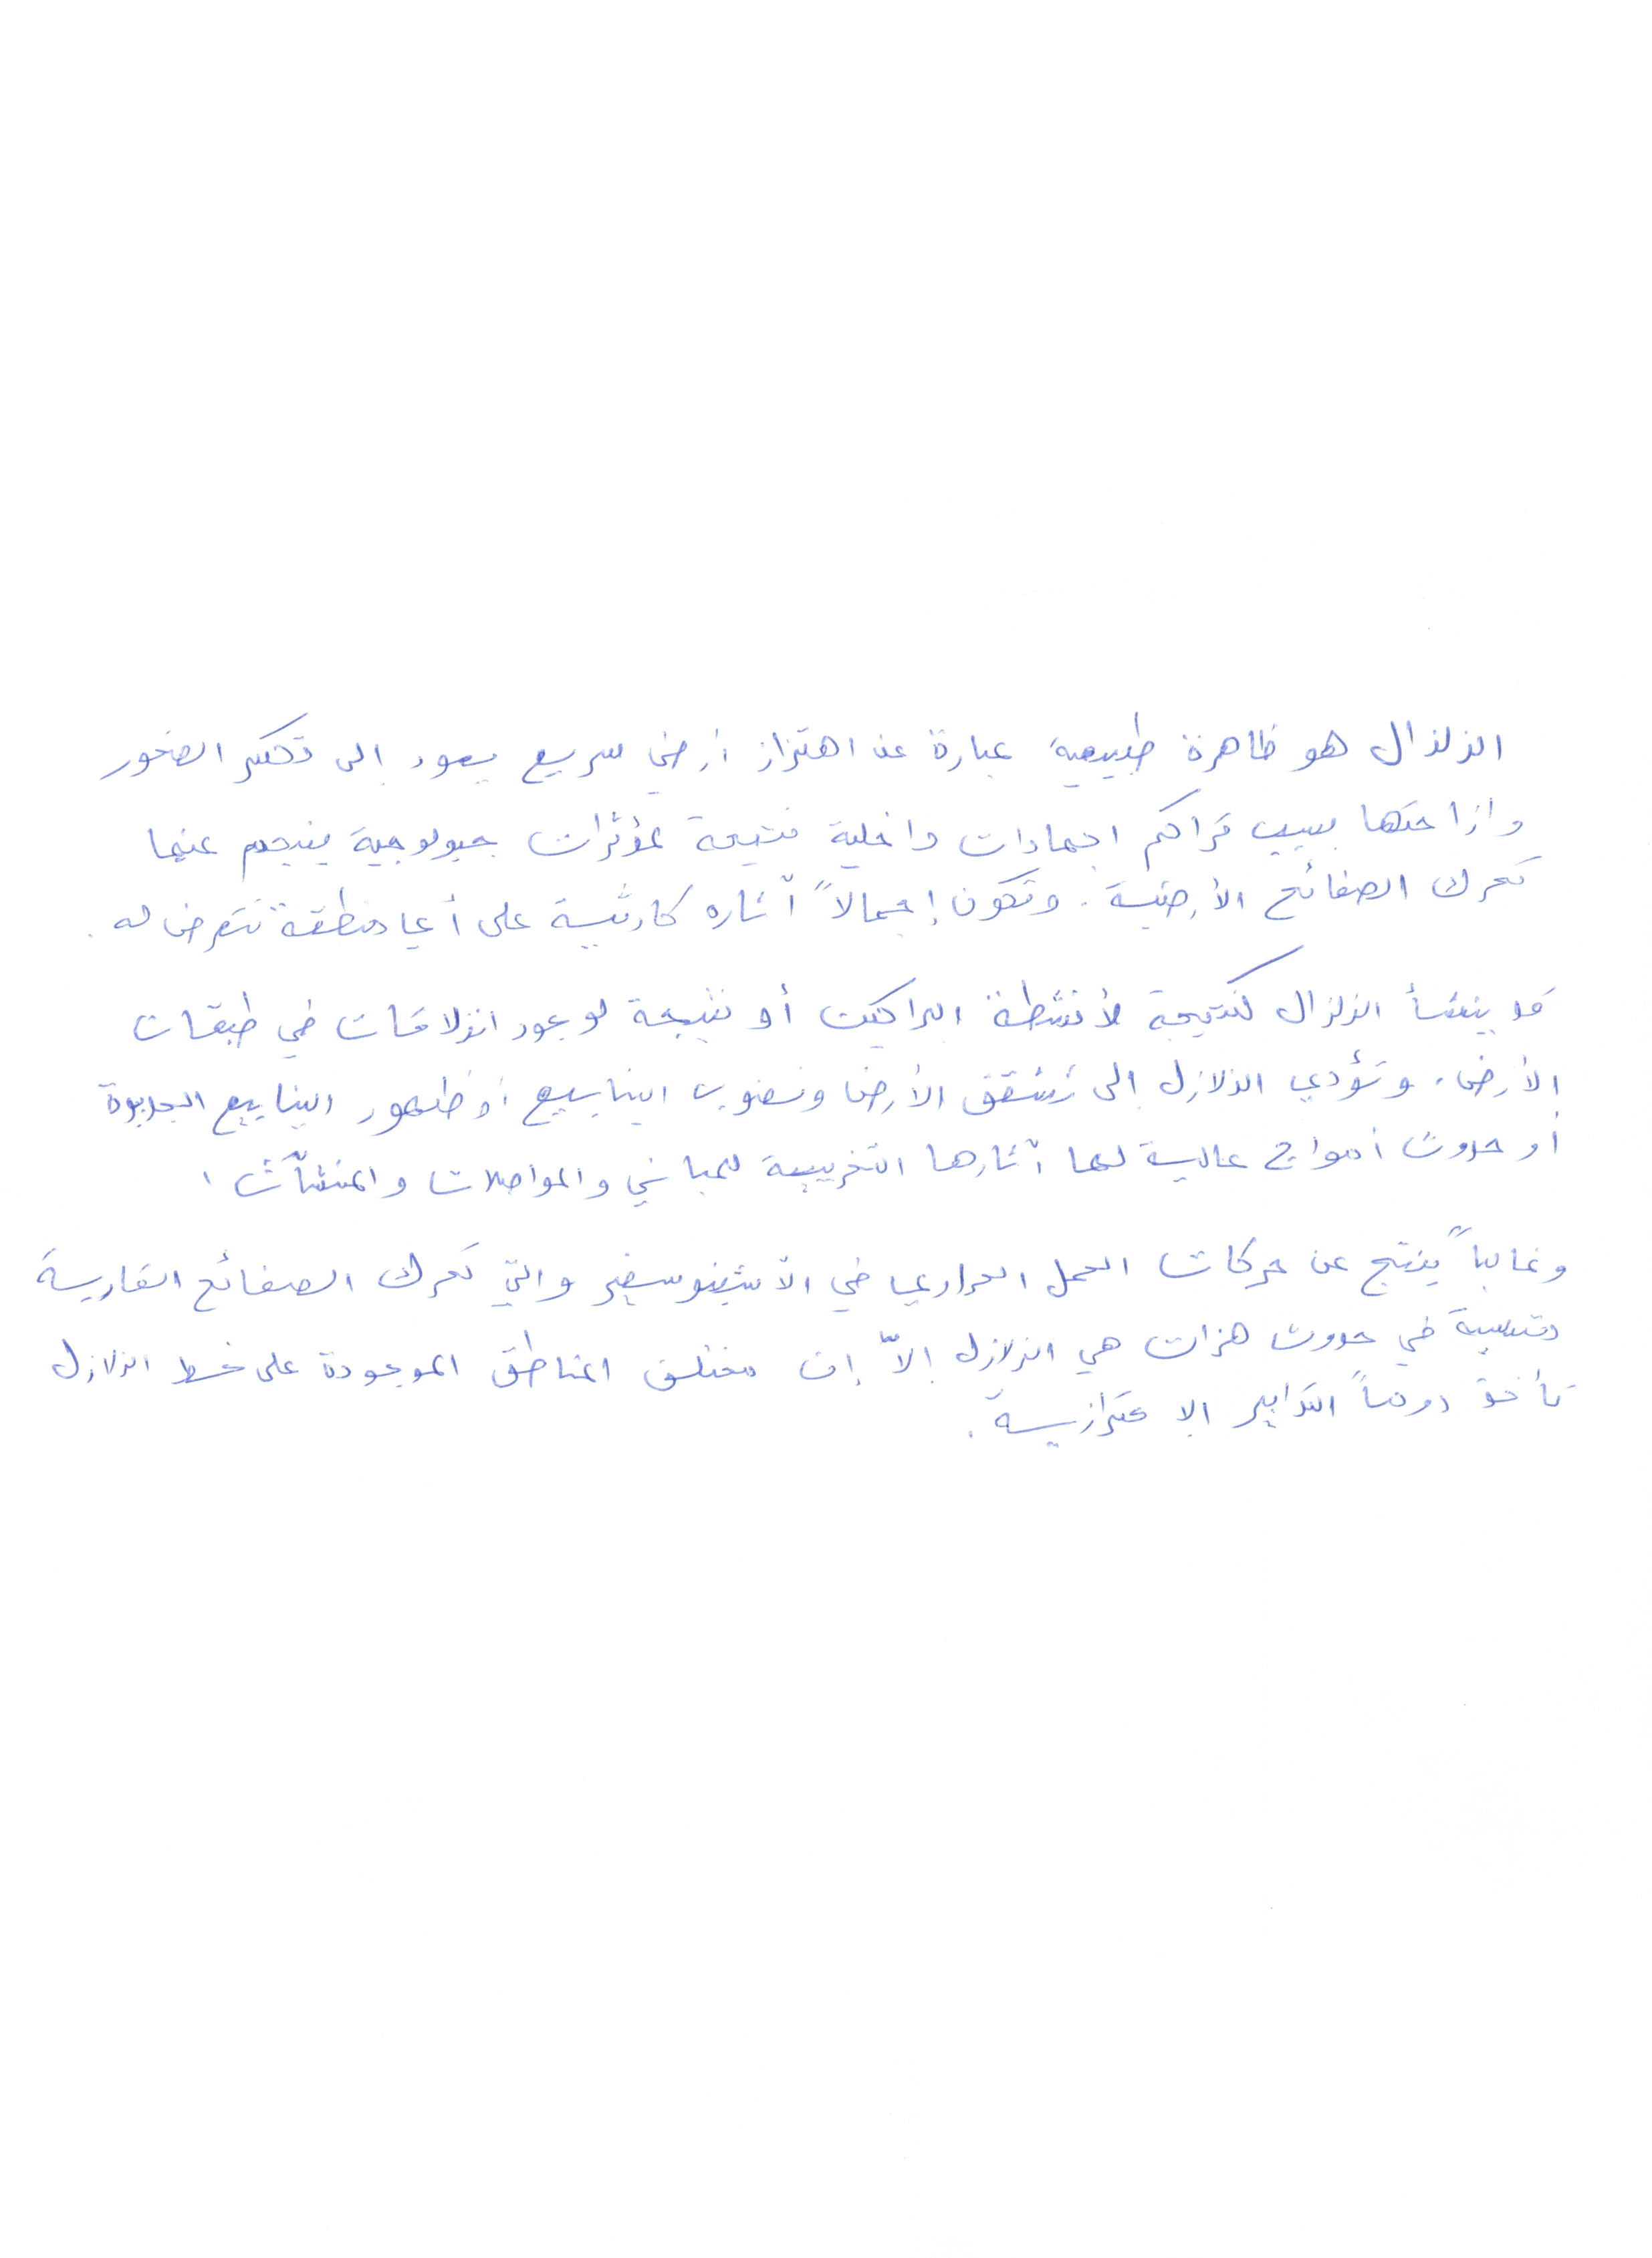 الزلزال هو ظاهرة طبيعية عبارة عن اهتزاز أرضي سريع يعود إلى تكسر الصخور
وازاحتها بسبب تراكم اجهادات داخلية نتيجة لمؤثرات جيولوجية ينجم عنها
تحرك الصفائح الأرضية. وتكون إجمالاً آثاره كارثية على أي منطقة تتعرض له.
قد ينشأ الزلزال كنتيجة لأنشطة البراكين أو نتيجة لوجود انزلاقات في طبقات
الأرض. وتؤدي الزلازل إلى تشقق الأرض ونضوب الينابيع أو ظهور الينابيع الجديدة
أو حدوث أمواج عالية لها آثارها التخريبية للمباني والمواصلات والمنشآت.
وغالباً ينتج عن حركات الحمل الحراري في الأسثينوسفير والتي تحرك الصفائح القارية
متسببة في حدوث هزات هي الزلازل إلاّ إن مختلف المناطق الموجودة على خط الزلازل
تأخذ دوماً التدابير الاحترازية.